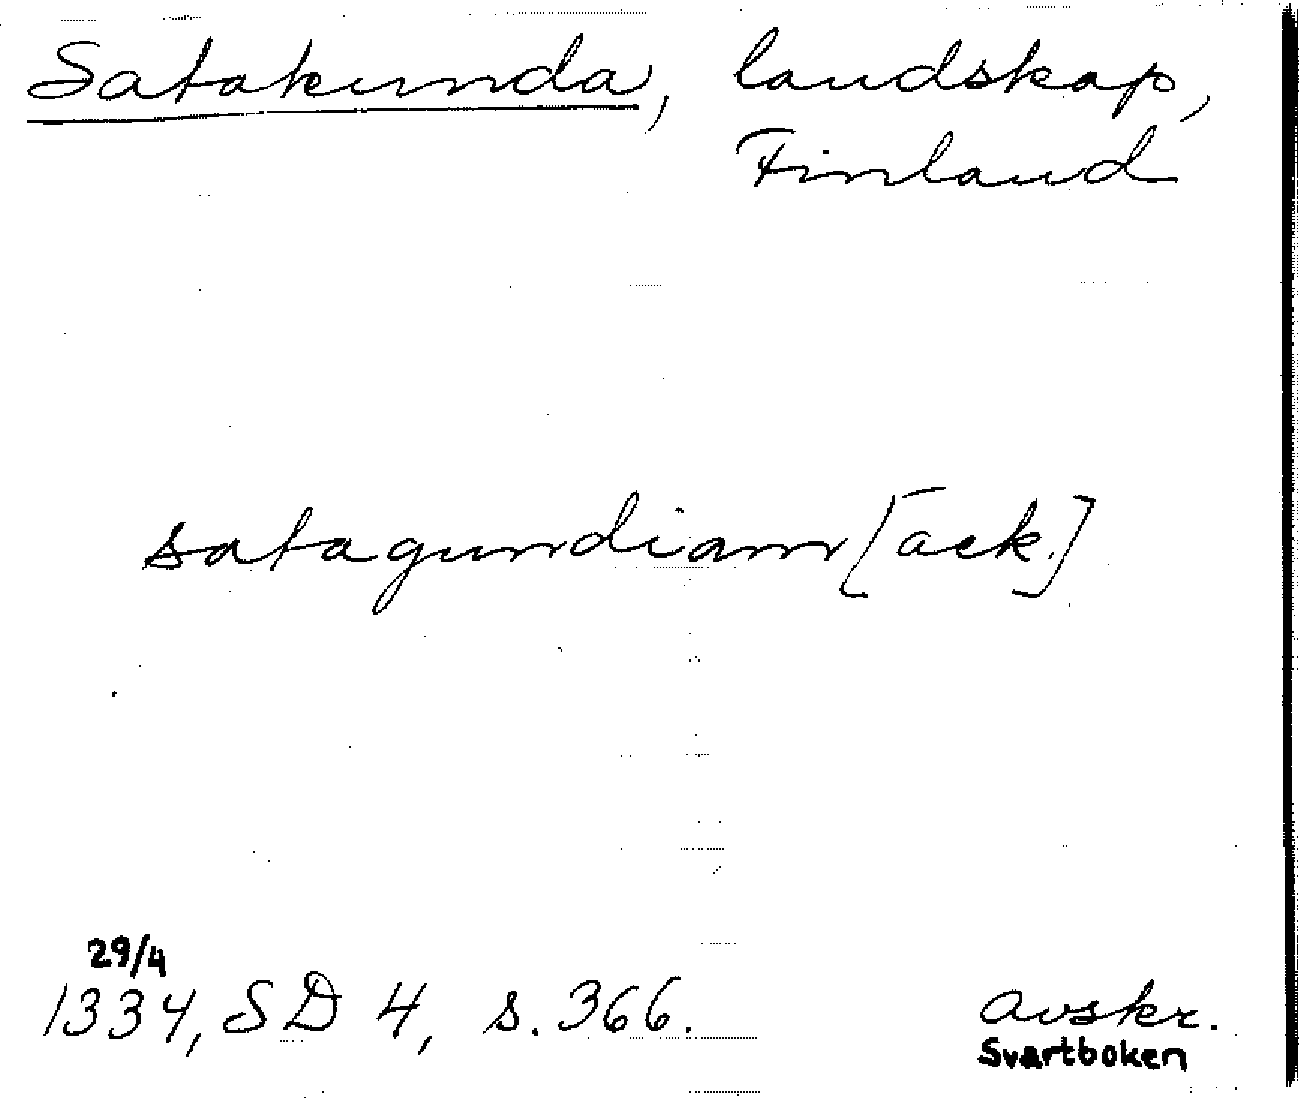 Satakunda, landskap,
Finland
satagundiam [ack.]
29/4
1334, SD 4, s. 366.
Avskr.
Svartboken